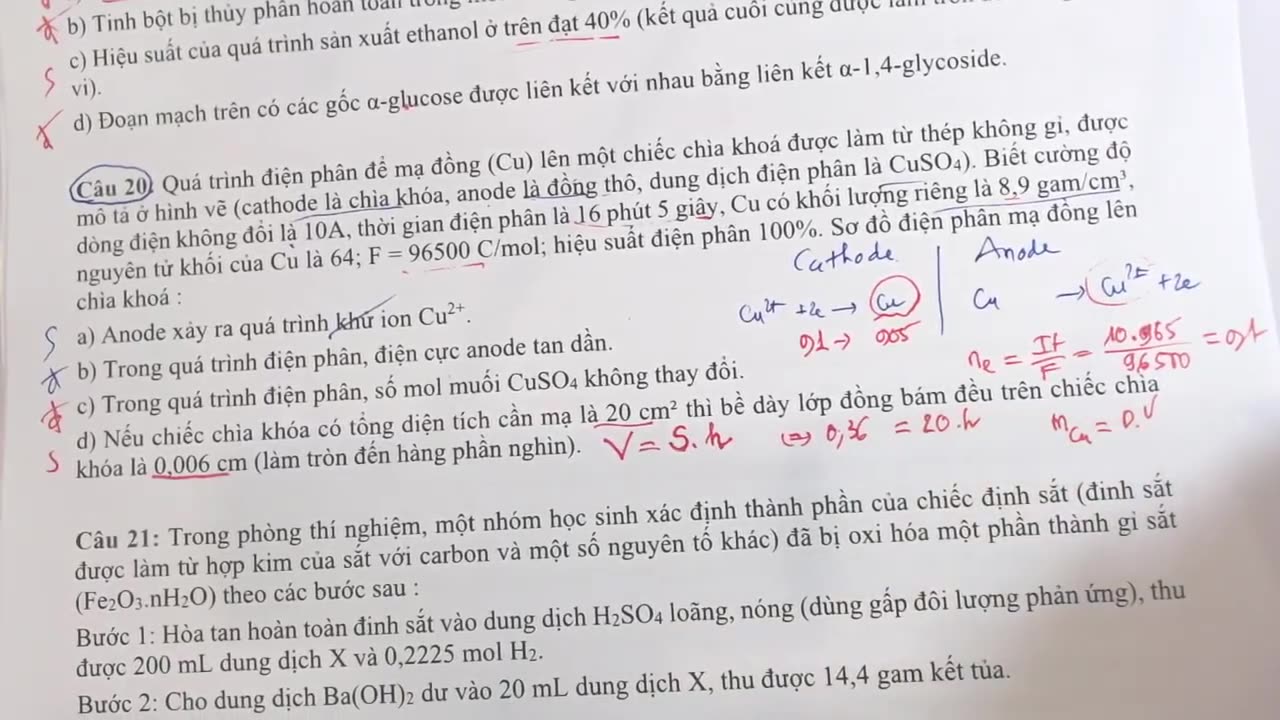 b) Tinh bột bị thủy phân hoàn toàn trong
c) Hiệu suất của quá trình sản xuất ethanol ở trên đạt 40% (kết quả cuối cùng được làm
vi).
d) Đoạn mạch trên có các gốc α-glucose được liên kết với nhau bằng liên kết α-1,4-glycoside.
Câu 20: Quá trình điện phân để mạ đồng (Cu) lên một chiếc chìa khoá được làm từ thép không gỉ, được
mô tả ở hình vẽ (cathode là chìa khóa, anode là đồng thô, dung dịch điện phân là CuSO₄). Biết cường độ
dòng điện không đổi là 10A, thời gian điện phân là 16 phút 5 giây, Cu có khối lượng riêng là 8,9 gam/cm³,
nguyên tử khối của Cu là 64; F = 96500 C/mol; hiệu suất điện phân 100%. Sơ đồ điện phân mạ đồng lên
chìa khoá :
Cathode Anode
Cu²⁺ +2e → Cu
Cu → Cu²⁺ +2e
0,1 → 0,05
S a) Anode xảy ra quá trình khử ion Cu²⁺.
b) Trong quá trình điện phân, điện cực anode tan dần.
nₑ = It/F = 10.965/96500 = 0,1
c) Trong quá trình điện phân, số mol muối CuSO₄ không thay đổi.
d) Nếu chiếc chìa khóa có tổng diện tích cần mạ là 20 cm² thì bề dày lớp đồng bám đều trên chiếc chìa
S khóa là 0,006 cm (làm tròn đến hàng phần nghìn).
V = S.h ⇔ 0,36 = 20.h
m_Cu = D.V
Câu 21: Trong phòng thí nghiệm, một nhóm học sinh xác định thành phần của chiếc định sắt (đinh sắt
được làm từ hợp kim của sắt với carbon và một số nguyên tố khác) đã bị oxi hóa một phần thành gỉ sắt
(Fe₂O₃.nH₂O) theo các bước sau :
Bước 1: Hòa tan hoàn toàn đinh sắt vào dung dịch H₂SO₄ loãng, nóng (dùng gấp đôi lượng phản ứng), thu
được 200 mL dung dịch X và 0,2225 mol H₂.
Bước 2: Cho dung dịch Ba(OH)₂ dư vào 20 mL dung dịch X, thu được 14,4 gam kết tủa.